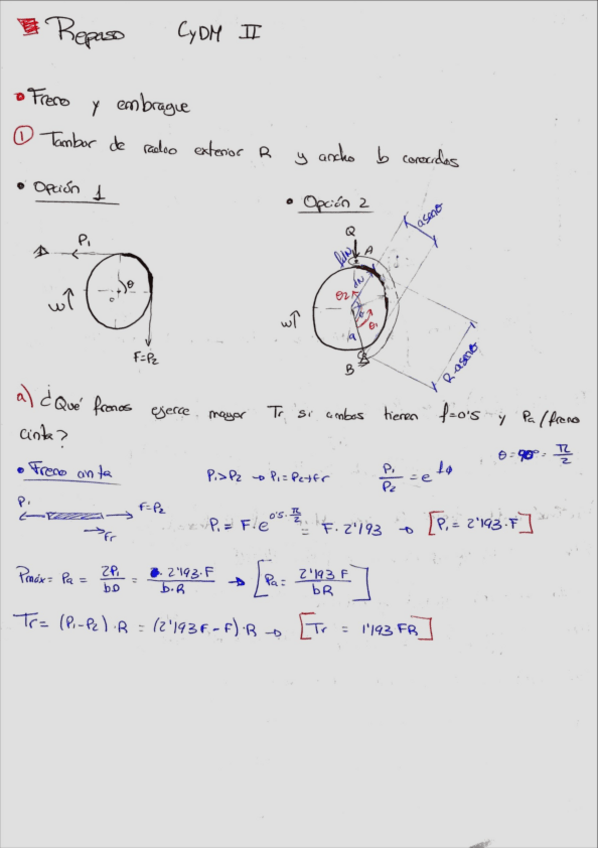 Repaso CyDM II
Freno y embrague
1 Tambor de radio exterior R y ancho b conocidos
• Opción 1
• Opción 2
P1
θ
ω↑
F=P2
Q
A
fdN
dN
θ2
θ1
a
ω↑
B
a senθ
R-a senθ
a) ¿Qué frenos ejerce mayor Tr si ambos tienen f=0'5 y Pa/freno
cinta?
θ = 90º = π/2
• Freno cinta
P1>P2 → P1=P2+Fr
P1/P2 = e^fφ
P1
F=P2
Fr
P1 = F·e^(0'5·π/2) = F·2'193 → [P1 = 2'193·F]
Pmáx = Pa = 2P1/bD = 2'193·F/b·R → [Pa = 2'193 F/bR]
Tr = (P1-P2)·R = (2'193F-F)·R → [Tr = 1'193 FR]